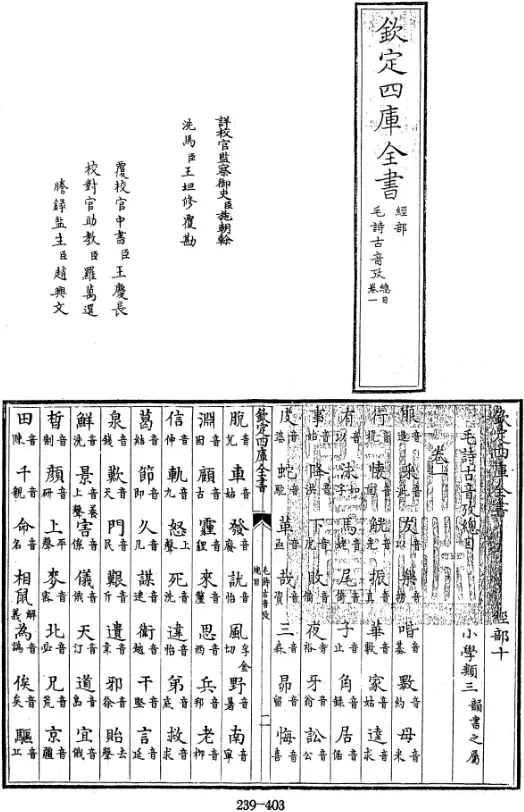 欽定四庫全書
經部
毛詩古音攷
總目
卷一
詳校官監察御史臣施朝幹
洗馬臣王坦修覆勘
覆校官中書臣王慶長
校對官助教臣羅萬選
謄錄監生臣趙興文
欽定四庫全書 經部十
毛詩古音攷總目 小學類三 韻書之屬
卷一
服音逼 采音 友音以 樂音 喈音基 斁音約 母音米
行音杭 懷音回 觥音光 振音真 華音敷 家音姑 逵音求
有音以 馬音姥 尾音倚 子音止 角音錄 居音倨
事音始 下音虎 敗音 夜音裕 牙音 訟音公
皮音婆 蛇音駝 革音亟 哉音資 三音森 昴音留 悔音喜
欽定四庫全書 毛詩古音攷 總目 一
脫音兌 車音姑 發音廢 訧音怡 風孚金切 野音暑 南音寧
淵音因 顧音古 霾音貍 來音釐 思音西 兵音邦 老音柳
信音伸 軌音九 怒上聲 死音洗 違音怡 弟音底 救音求
葛音結 節音即 久音几 謀音 衛音越 干音堅 言音延
泉音錢 歎音天 門音民 艱音斤 遺音 邪音徐 貽去聲
鮮音洗 景音養上聲 害音係 儀音俄 天音汀 道音島 宜音俄
晢音制 顏音研 上平聲 麥音 北音必 兄音荒 京音疆
田音陳 千音親 命音名 相鼠解義 為音譌 俟音矣 驅音丘
239-403